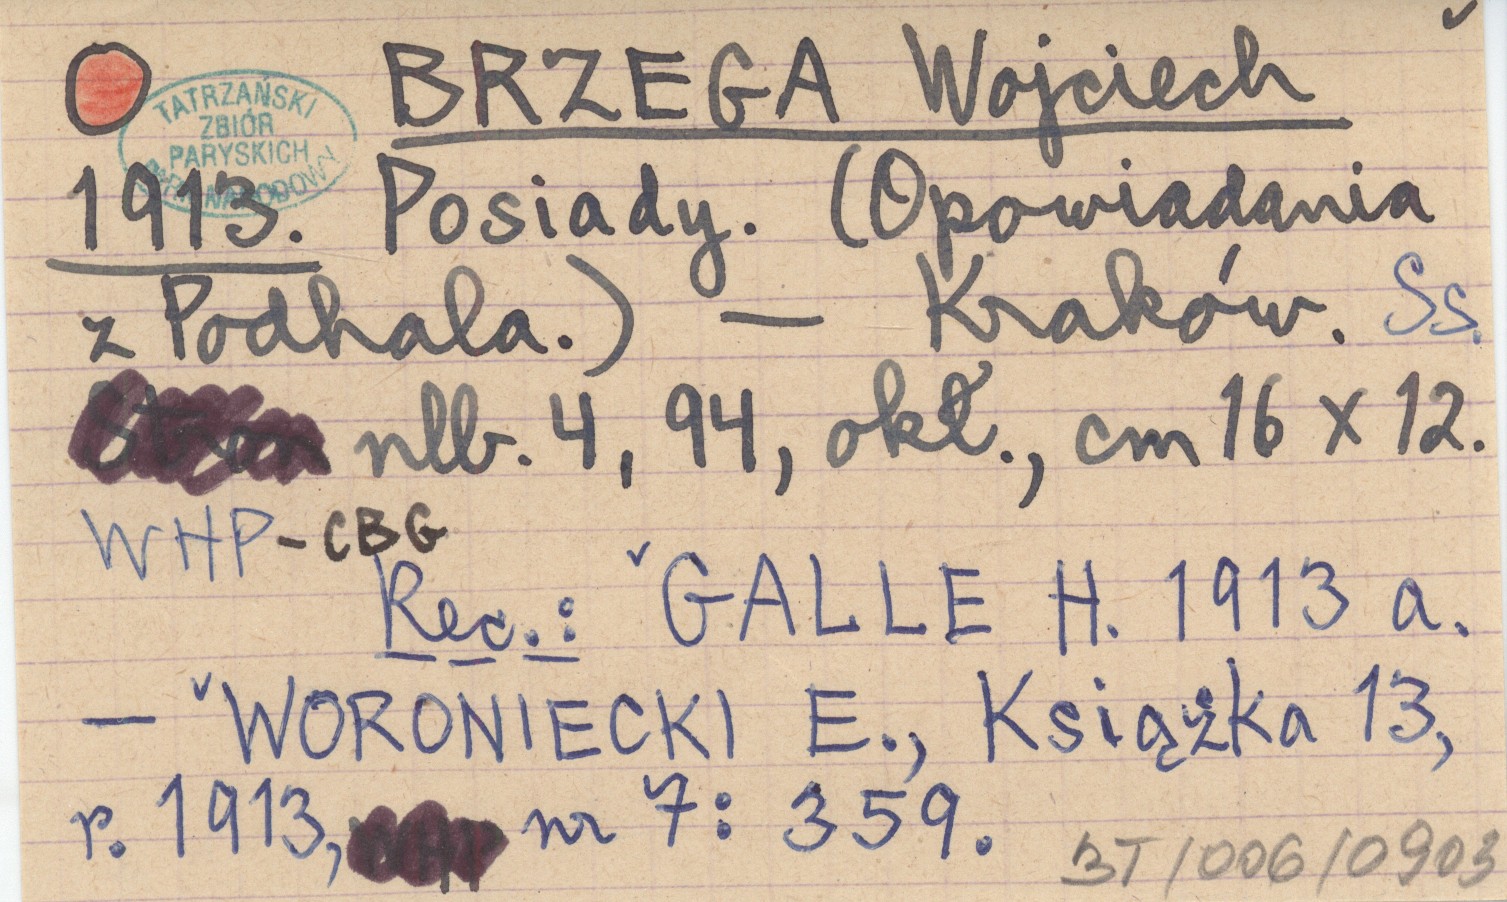 BRZEGA Wojciech
TATRZAŃSKI
ZBIÓR
PARYSKICH
PARK NARODOWY
1913. Posiady. (Opowiadania
z Podhala.) — Kraków. Ss.
nlb. 4, 94, okł., cm 16 x 12.
WHP - CBG
Rec.: GALLE H. 1913 a.
— WORONIECKI E., Książka 13,
r. 1913, nr 7: 359.
BT/006/0903